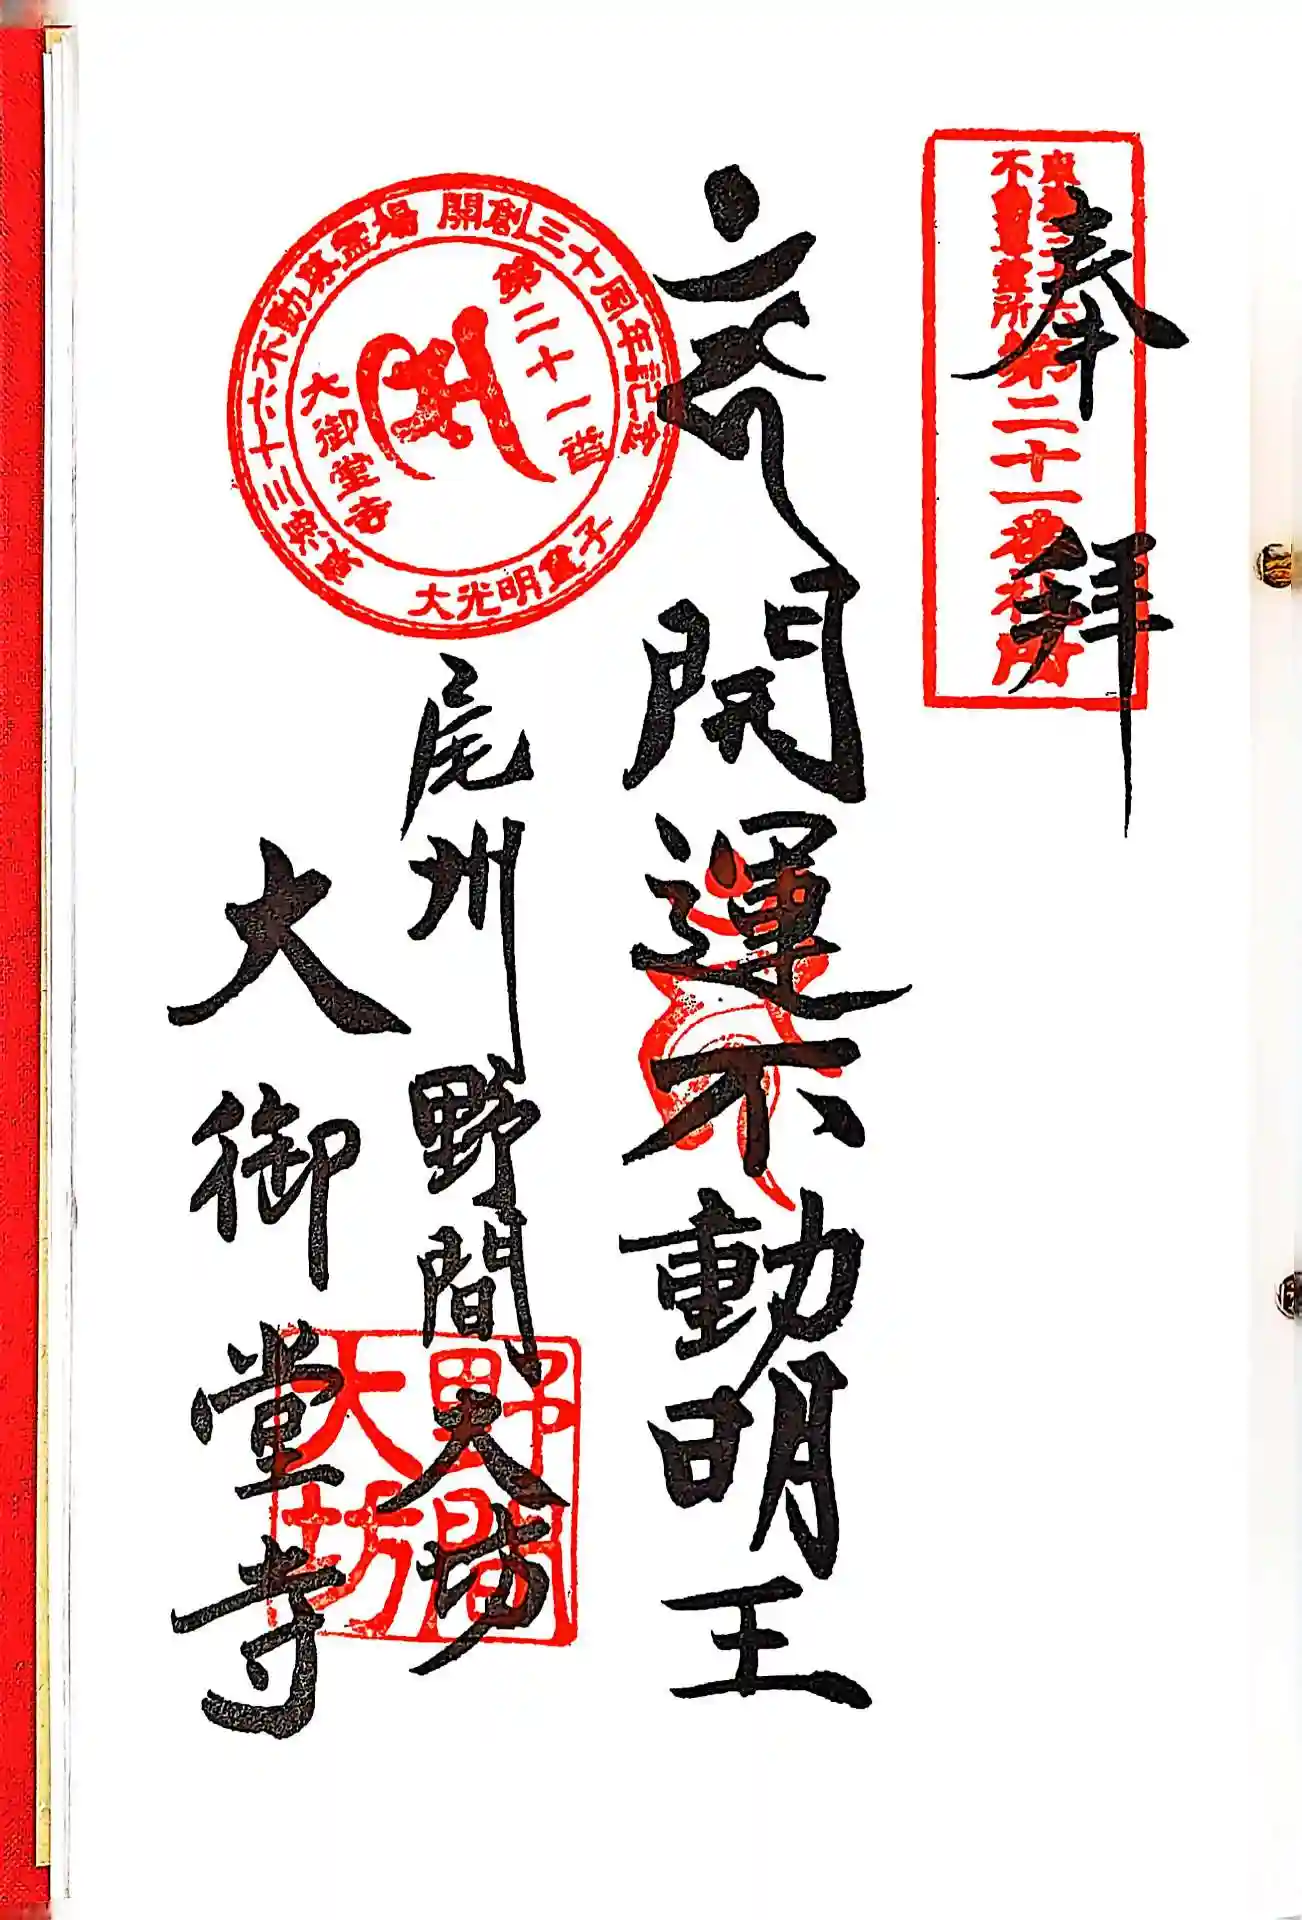 奉拝
東海三十六
不動尊霊所
第二十一番札所
開運不動明王
尾州野間大坊
大御堂寺
東海三十六不動尊霊場 開創三十周年記念
第二十一番
大御堂寺
大光明童子
野間
大坊